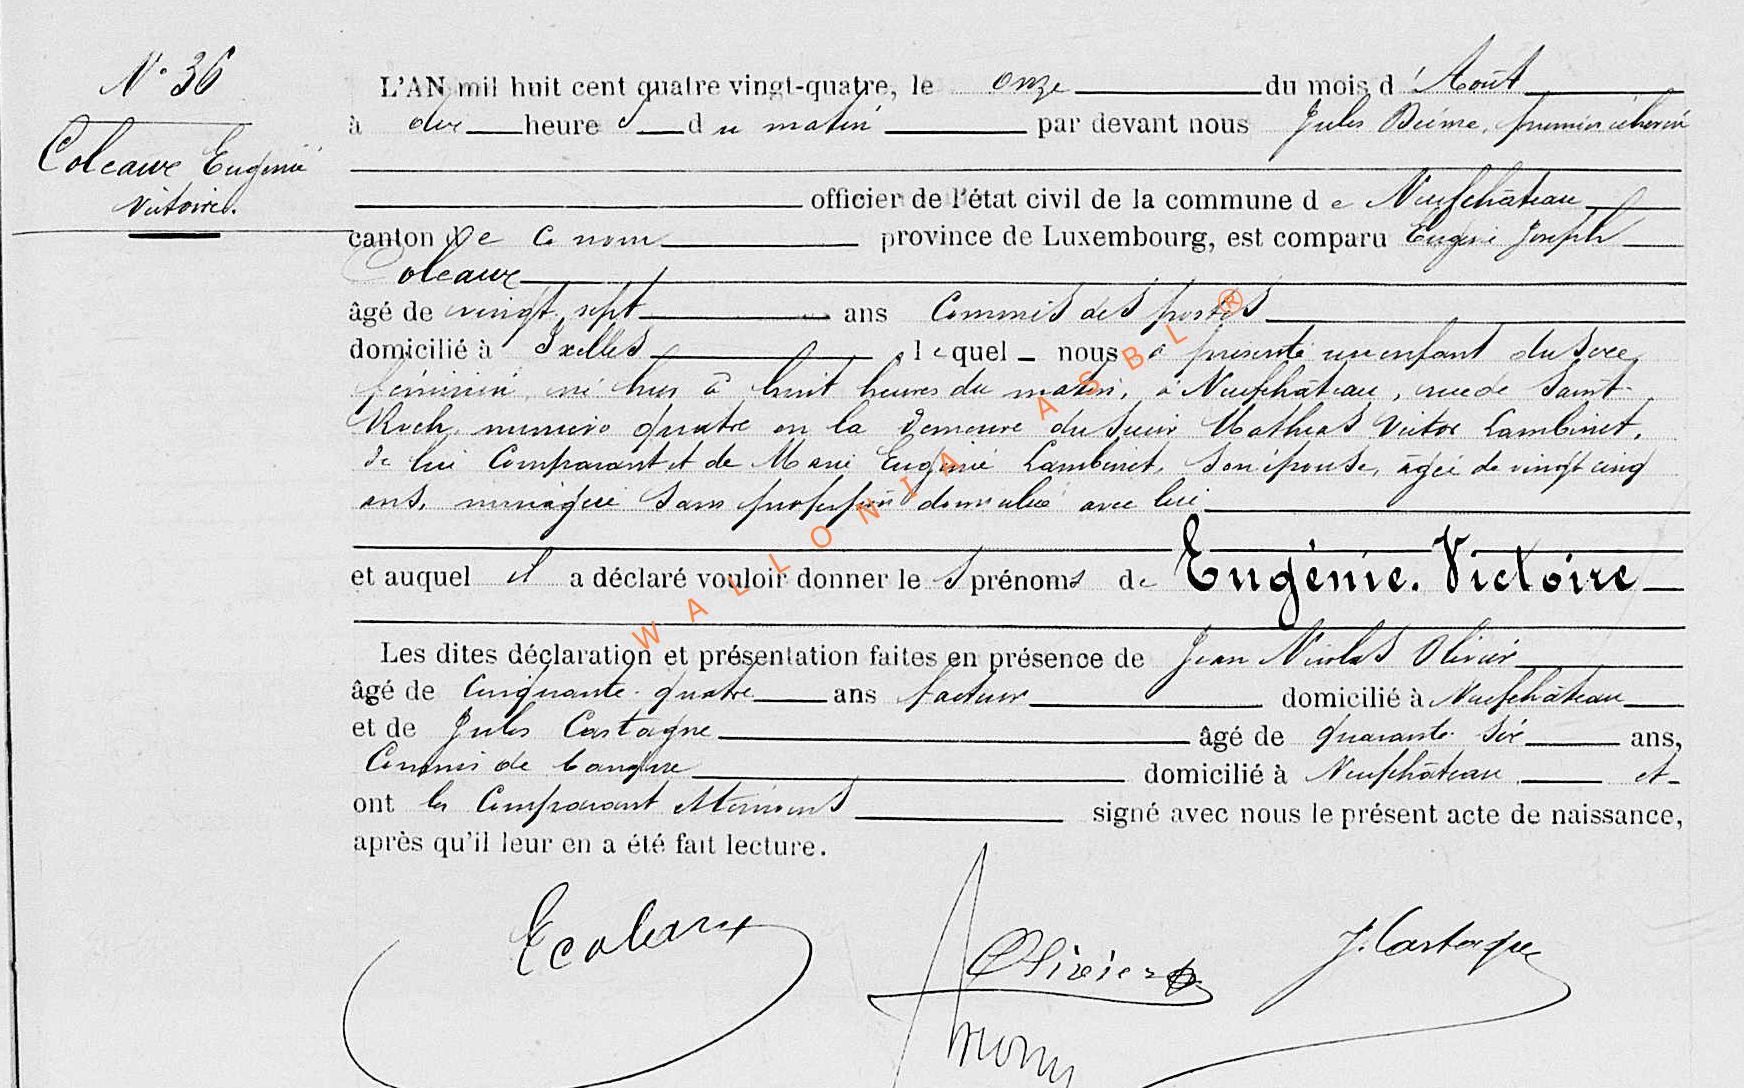 N° 36
Coleaux Eugénie
Victoire.
L'AN mil huit cent quatre vingt-quatre, le onze du mois d'Août
à dix heures du matin par devant nous Jules premier échevin
officier de l'état civil de la commune de Neufchâteau
canton de ce nom province de Luxembourg, est comparu Eugène Joseph
Coleaux
âgé de vingt sept ans Commis des postes
domicilié à Ixelles lequel nous a présenté un enfant du sexe
féminin, né hier à huit heures du matin, à Neufchâteau, rue de Saint-
Roch, numéro quatre en la demeure du sieur Mathias Victor Lambinet,
de lui Comparant et de Marie Eugénie Lambinet, son épouse, âgée de vingt cinq
ans, ménagère sans profession domiciliée avec lui
et auquel il a déclaré vouloir donner les prénoms de Eugénie. Victoire
Les dites déclaration et présentation faites en présence de Jean Nicolas Olivier
âgé de Cinquante-quatre ans facteur domicilié à Neufchâteau
et de Jules Castagne âgé de quarante-six ans,
Commis de banque domicilié à Neufchâteau et
ont les Comparant et témoins signé avec nous le présent acte de naissance,
après qu'il leur en a été fait lecture.
E Coleaux
Olivier
J. Castagne
WALLONIA ASBL ®